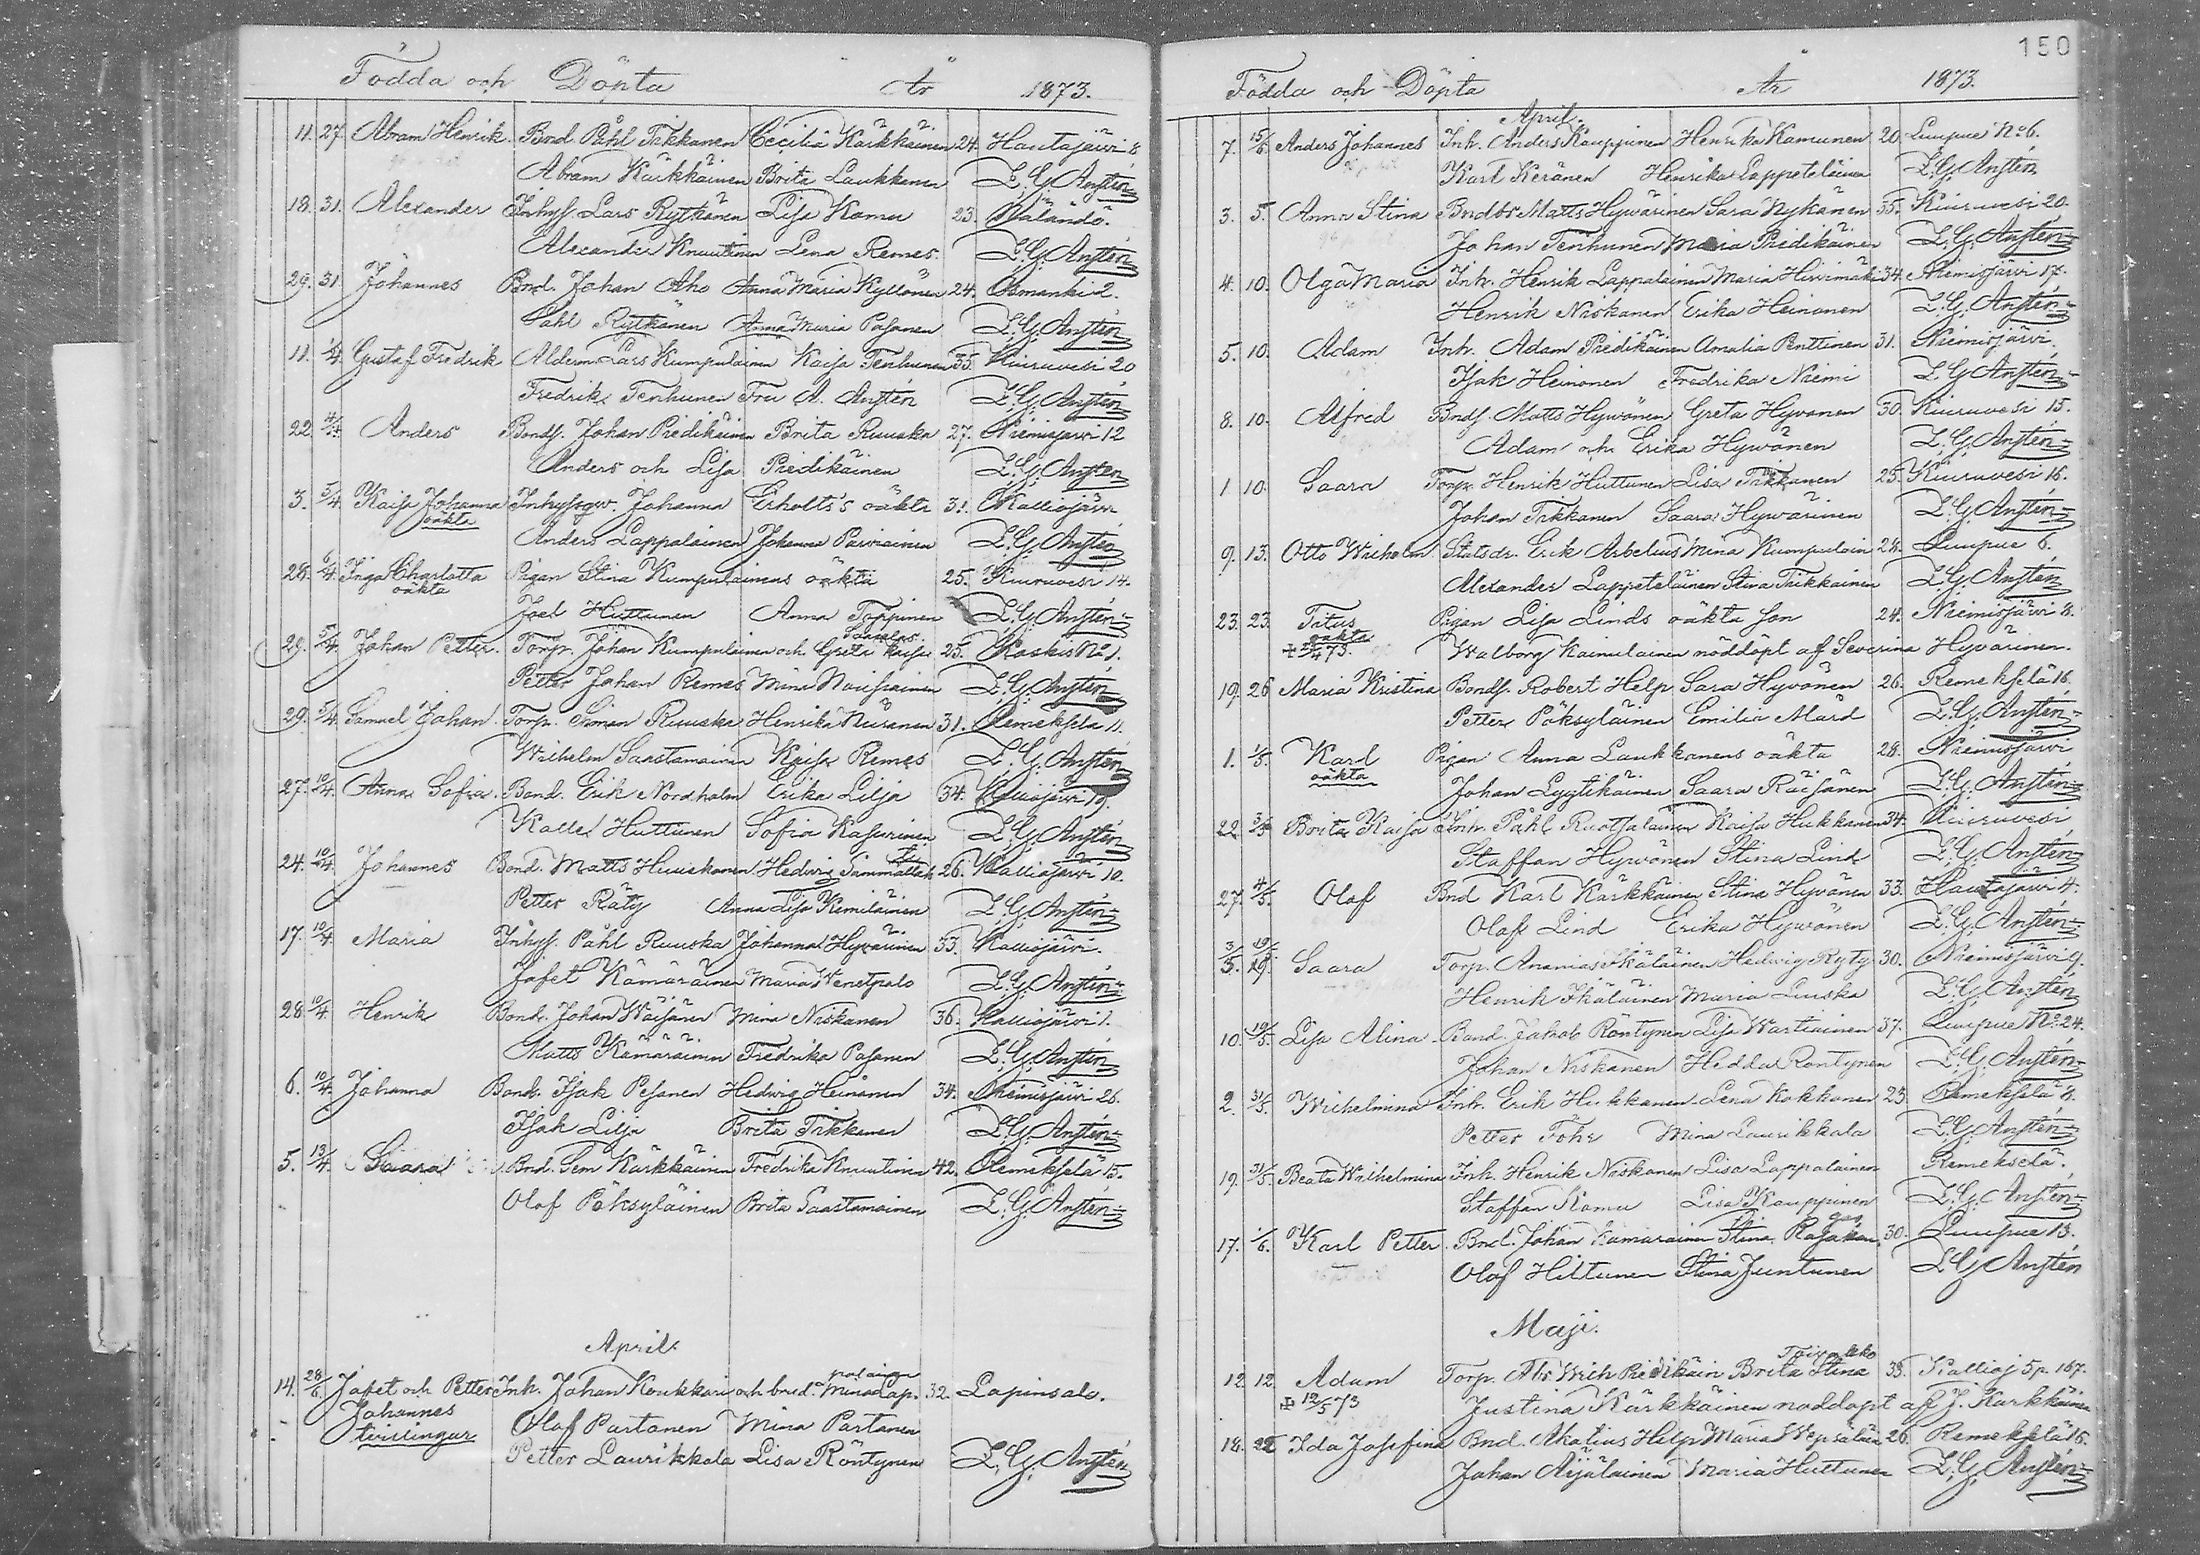 Födda och Döpta År 1873.
11. 27. Abram Henrik. Bnd. Påhl Tikkanen Cecilia Kärkkäinen 24. Hautajärvi 8
Abram Kärkkäinen Brita Laukkanen L. G. Anstén
18. 31. Alexander Inhys. Lars Rytkänen Lisa Kamu 23. Wäländö.
Alexander Knuutinen Lena Remes. L. G. Anstén
29. 31. Johannes Bnd. Johan Aho Anna Maria Kyllönen 24. Osmanki 2.
Påhl Rytkänen Anna Maria Pasanen L. G. Anstén
11. 1/4. Gustaf Fredrik Alderm. Lars Kumpulainen Kaisa Tenhunen 35. Kiuruvesi 20
Fredrik Tenhunen Fru A. Anstén L. G. Anstén
22. 4/4. Anders Bonds. Johan Piedikäinen Brita Ruuska 27. Niemisjärvi 12
Anders och Lisa Piedikäinen L. G. Anstén
3. 5/4. Kaisa Johanna Inhysqv. Johanna Erholts's oäkta 31. Kalliojärvi
oäkta
Anders Lappalainen Johanna Parviainen L. G. Anstén
28. 6/4. Inga Charlotta Pigan Stina Kumpulainens oäkta 25. Kiuruvesi 14.
oäkta
Joel Huttunen Anna Toppinen L. G. Anstén
29. 5/4. Johan Petter. Torp. Johan Kumpulainen och Greta Kaisa 25. Koskis No 1.
Petter Johan Remes Mina Nousiainen L. G. Anstén
29. 5/4. Samuel Johan. Torp. Simon Ruuska Henrika Niiranen 31. Remekselä 11.
Wilhelm Saastamoinen Kaisa Remes L. G. Anstén
27. 10/4. Anna Sofia. Bond. Erik Nordholm Erika Lilja 34. Kalliojärvi 19.
Kalle Huttunen Sofia Kasurinen L. G. Anstén
24. 10/4. Johannes Bond. Matts Huuskonen Hedvig Sammallah 26. Kalliojärvi 10.
Petter Räty Anna Lisa Kemiläinen L. G. Anstén
17. 10/4. Maria Inhys. Påhl Ruuska Johanna Hyvärinen 33. Kalliojärvi.
Jafet Kämäräinen Maria Wenetpalo L. G. Anstén
28. 10/4. Henrik Bond. Johan Wäisänen Mina Niskanen 36. Kalliojärvi 1.
Matts Kämäräinen Fredrika Pasanen L. G. Anstén
6. 10/4. Johanna Bond. Isak Pesanen Hedvig Heinänen 34. Niemisjärvi 26.
Isak Lilja Brita Tikkanen L. G. Anstén
5. 13/4. Saara Bnd. Sem Kärkkäinen Fredrika Knuutinen 42. Remekselä 15.
Olof Pöksyläinen Brita Saastamoinen L. G. Anstén
April.
palainen
14. 28/6. Jafet och Petter Inh. Johan Koukkari och brud. Mina Lap- 32. Lapinsalo.
Johannes Olof Partanen Mina Partanen
tvillingar Petter Laurikkala Lisa Röntynen L. G. Anstén
150
Födda och Döpta År 1873.
April.
7. 15/6. Anders Johannes Inh. Anders Kauppinen Henrika Kamunen 20. Luupue No 6.
Karl Keränen Henrika Lappeteläinen L. G. Anstén
3. 5. Anna Stina Bndbr Matts Hywärinen Sara Nykänen 35. Kiuruvesi 20.
Johan Tenhunen Maria Piedikäinen L. G. Anstén
4. 10. Olga Maria Inh. Henrik Lappalainen Maria Hirvimäki 34. Niemisjärvi 17.
Henrik Niskanen Erika Heinonen L. G. Anstén
5. 10. Adam Inh. Adam Piedikäinen Amalia Penttinen 31. Niemisjärvi.
Isak Heinonen Fredrika Niemi L. G. Anstén
8. 10. Alfred Bnds. Matts Hywönen Greta Hyvonen 30. Kiuruvesi 15.
Adam och Erika Hywönen L. G. Anstén
1 10. Saara Torp. Henrik Huttunen Lisa Tikkanen 25. Kiuruvesi 16.
Johan Tikkanen Saara Hywärinen L. G. Anstén
9. 13. Otto Wilhelm Statsdr. Erik Arbelius Mina Kumpulain 28. Luupue 6.
Alexander Lappeteläinen Stina Tikkainen L. G. Anstén
23. 23. Titus Pigan Lisa Linds oäkta son 24. Niemisjärvi 8.
oäkta
Walborg Kainulainen nöddöpt af Severina Hyvärinen.
19. 26 Maria Kristina Bonds. Robert Help Sara Hyvönen 26. Remekselä 16.
Petter Pöksyläinen Emilia Mård L. G. Anstén
1. 1/5. Karl Pigan Anna Laukkanens oäkta 28. Niemisjärvi
oäkta Johan Lyytikäinen Saara Räisänen L. G. Anstén
22. 3/5. Brita Kaisa Inh. Påhl Ruotsalainen Kaisa Hukkanen 34. Kiuruvesi
Staffan Hyvönen Stina Lind L. G. Anstén
27. 4/5. Olof Bnd Karl Kärkkäinen Stina Hyvönen 33. Hautajärvi 4.
Olof Lind Erika Hywönen L. G. Anstén
Saara Torp. Ananias Ikäläinen Hedvig Ryty 30. Niemisjärvi 9.
Henrik Ikäläinen Maria Luuska L. G. Anstén
10. 19/5. Lisa Alina Bond. Jakob Röntynen Lisa Wartiainen 37. Luupue No 24.
Johan Niskanen Hedda Röntynen L. G. Anstén
2. 31/5. Wilhelmina Inh. Erik Hukkanen Lena Kokkonen 23. Remekselä 8.
Petter Föhr Mina Laurikkala L. G. Anstén
19. 31/5. Beata Wilhelmina Inh. Henrik Niskanen Lisa Lappalainen Remekselä.
Staffan Kamu Lisa Kauppinen L. G. Anstén
17. 1/6. Karl Petter. Bnd. Johan Kamarainen Stina Rajakan 30. Luupue 13.
Olof Hiltunen Stina Juntunen L G Anstén
Maji.
12. 12. Adam Torp. Abr. Wilh Piedikäin Brita Stina 33. Kallioj 5 p. 167.
✠ 12/5 73 Justina Kärkkäinen noddopt af J. Karkkäinen
18. 22 Ida Josefina Bnd. Akatius Help Maria Wepsäläin 26. Remekselä 16.
Johan Äijälainen Maria Huttunen L. G. Anstén